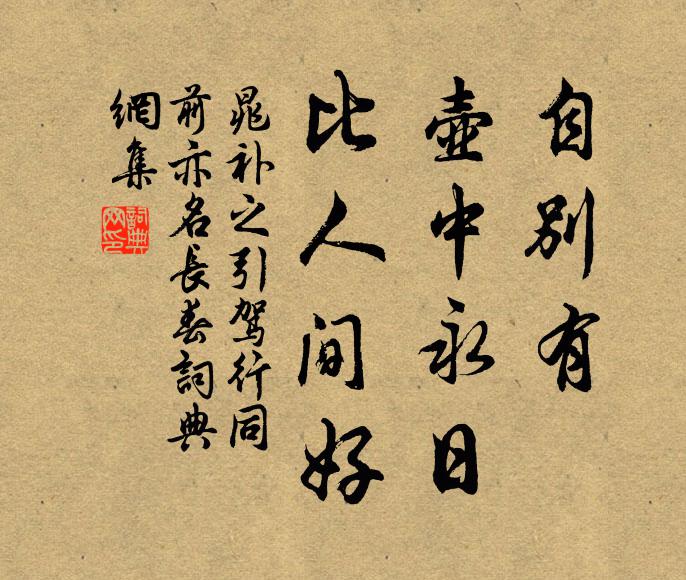 自別有
壺中永日
比人間好
晁补之引駕行同
前亦名長春詞典
網集
詞典
网印